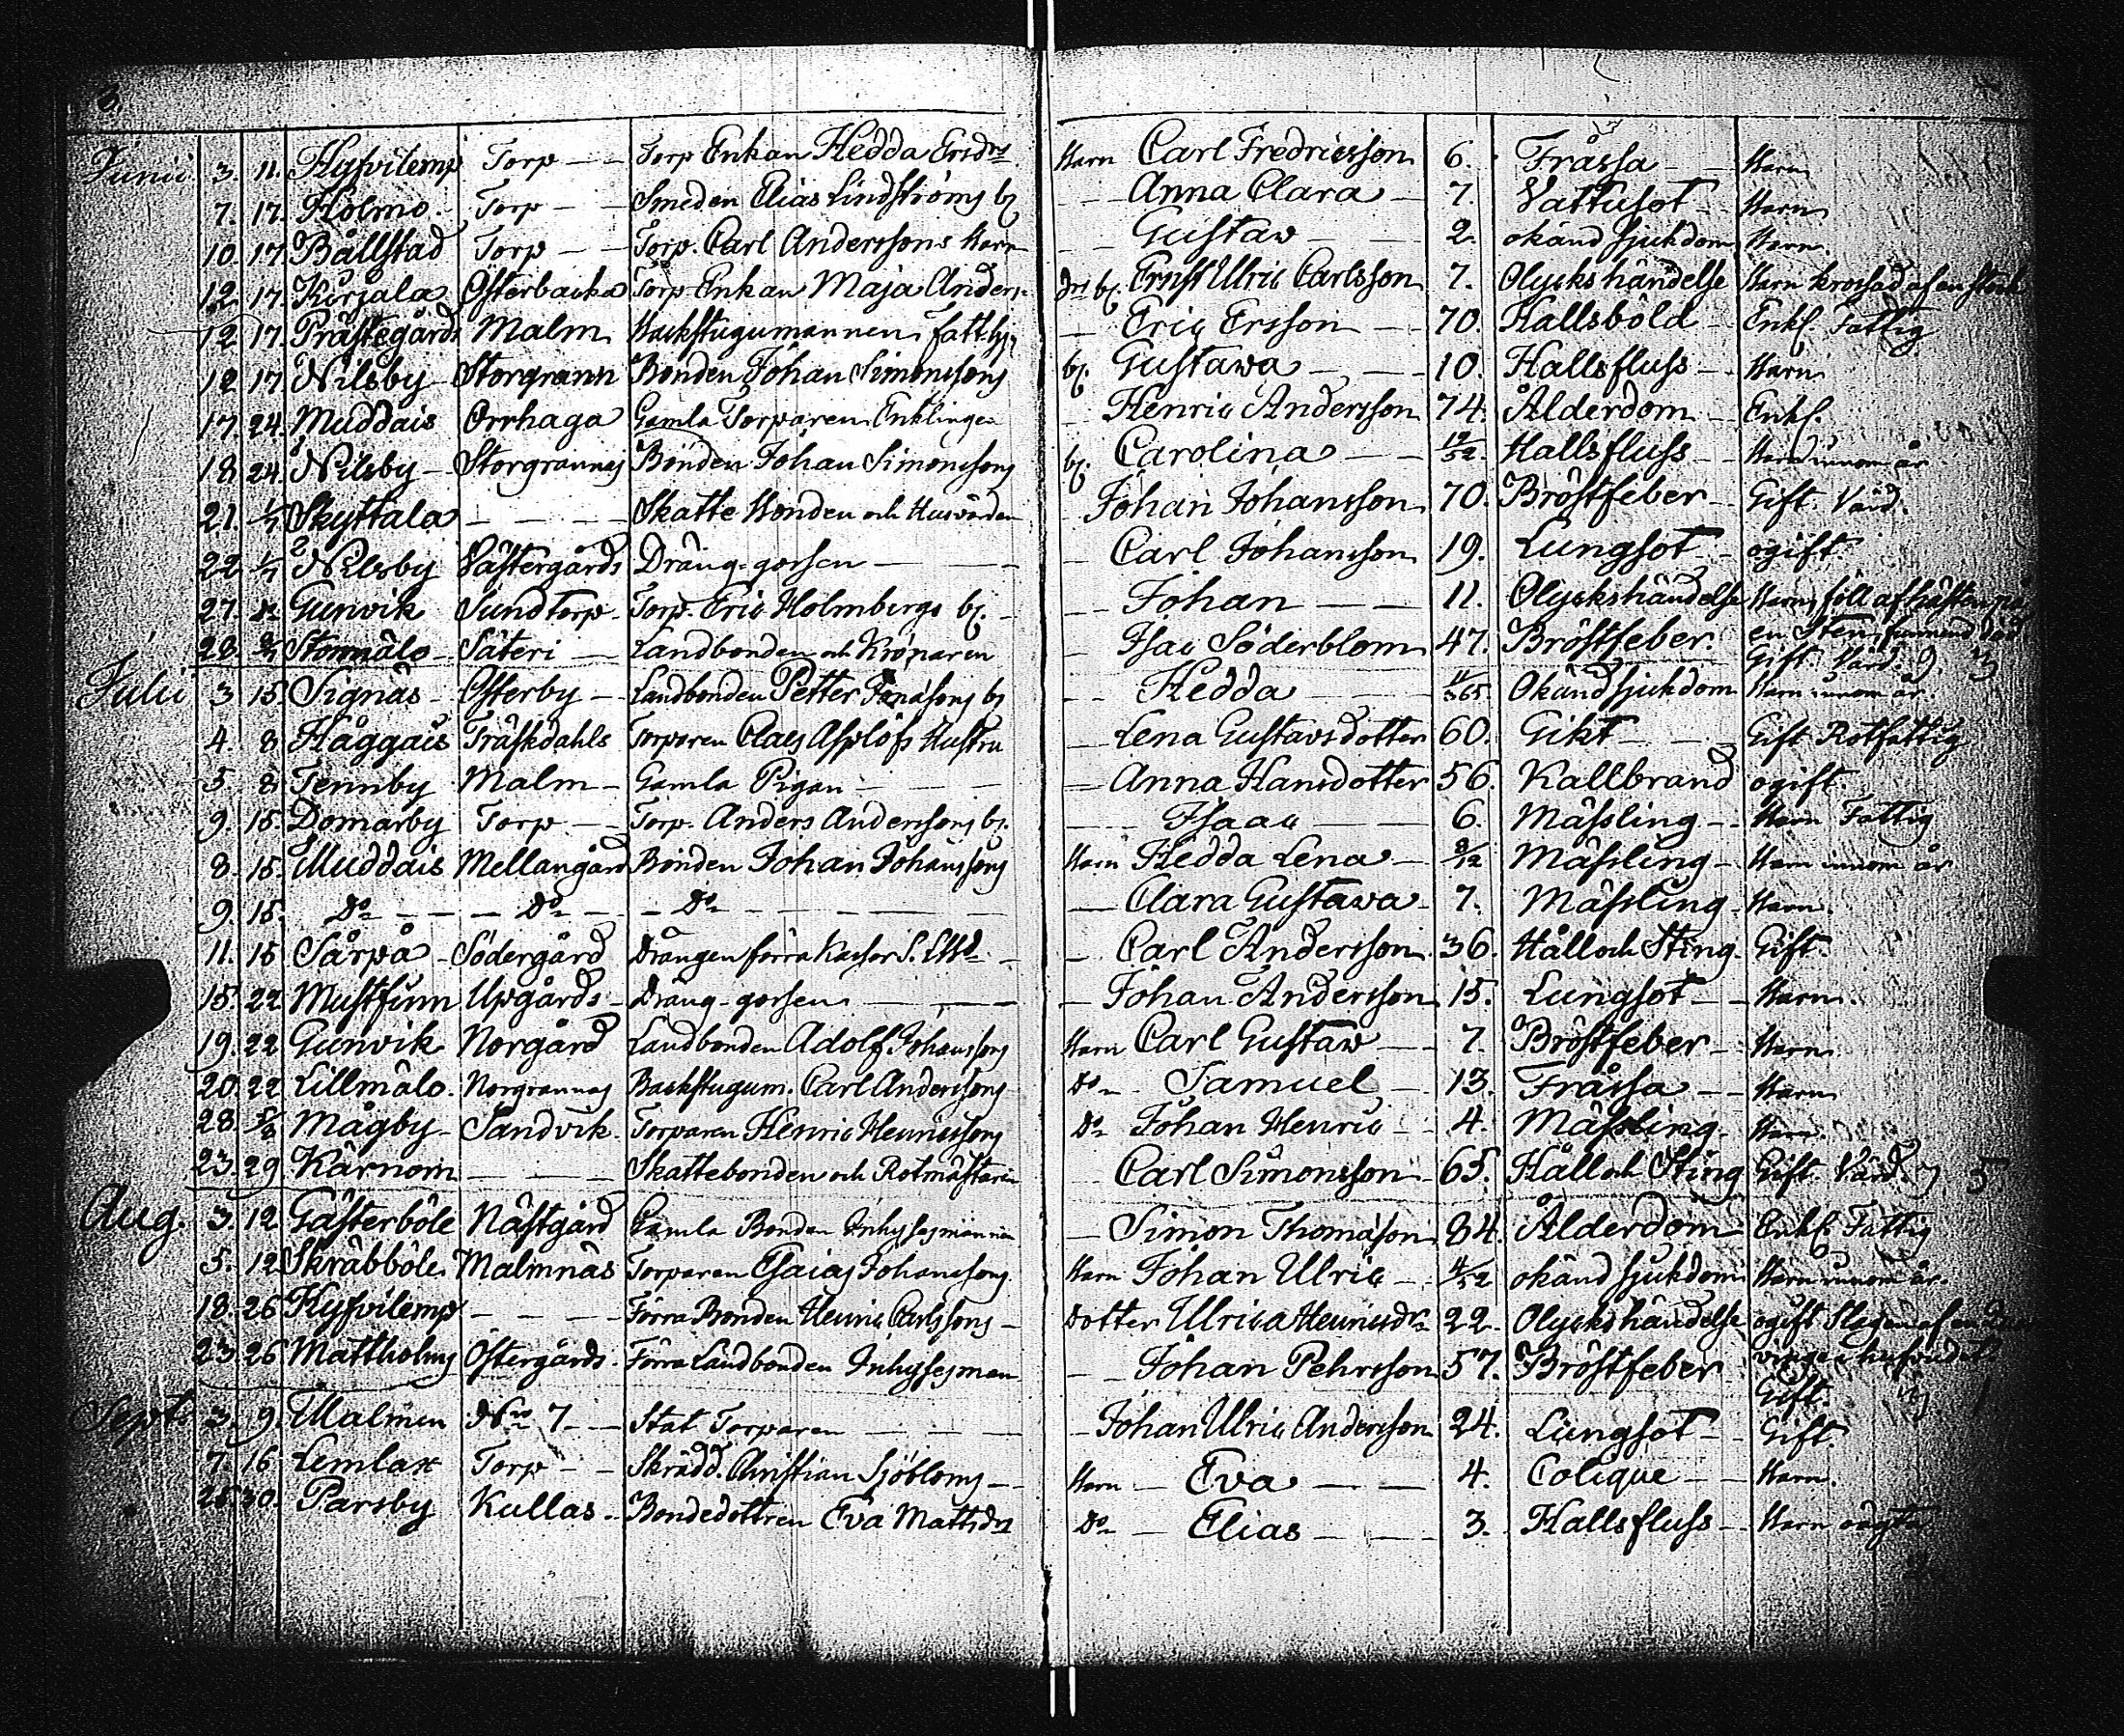 3
Junii 3. 11. Hyfvilemp Torp Torp Enkan Hedda Ersdr Barn Carl Fredricsson 6. Fråssa Barn
7. 17. Holmo Torp Smeden Elias Lindströms bn Anna Clara 7. Vattusot Barn
10. 17. Bällstad Torp Torp. Carl Anderssons Barn Gustav 2. okänd sjukdom Barn
12. 17. Korjala Österbacka Torp Enkan Maja Anders- drs bn. Ernst Ulric Carlsson 7. Olyckshändelse Barn krossad af en stock
12 17. Prästegårds Malm Backstugumannen Fatthj. Eric Ersson 70. Hallsböld Enkl. Fattig
12 17 Nilsby Storgrann Bonden Johan Simonssons bn. Gustava 10. Hallsfluss Barn
17. 24. Muddais Orrhaga Gamla Torparen Enklingen Henric Andersson 74. Ålderdom Enkl.
18 24. Nilsby Storgrannas Bonden Johan Simonssons bn. Carolina 12/52. Hallsfluss Barn innom år
21. 1/7 Skyttala Skatte Bonden och Husvärden Johan Johansson 70. Bröstfeber Gift. Värd.
22 1/7 Nilsby Västergårds Dräng-gossen Carl Johansson 19. Lungsot ogift
27. Gunvik Sund Torp Torp. Eric Holmbergs bn. Johan 11. Olyckshändelse Barn, föll af hästen på
28. Stormälo Säteri Landbonden och Kronaren Isac Söderblom 47. Bröstfeber. en Sten, funnen död
Gift. Värd.
Julii 3 15. Signäs Österby Landbonden Petter bn Hedda 11/365. Okänd sjukdom Barn innom år.
4. 8 Häggais Träskdahls Torparen Claes Asplöfs Hustru Lena Gustavsdotter 60. Gikt Gift Rotfattig
5. 8 Tennby Malm Gamla Pigan Anna Hansdotter 56. Kallbrand ogift.
9. 15. Domarby Torp Torp. Anders Anderssons bn. Isaac 6. Mässling Barn Fattig
8. 15. Muddais Mellangård Bonden Johan Johanssons Barn Hedda Lena 8/12 Mässling Barn innom år
9. 15. Do Do Do Clara Gustava 7. Mässling Barn.
11. 15 Särpå Södergård Drängen förra Carl Andersson 36. Håll och Sting Gift.
15. 22 Mustfinn Upgårds Dräng-gossen Johan Andersson 15. Lungsot Barn.
19. 22 Gunvik Norgård Landbonden Adolf Johanssons Barn Carl Gustav 7. Bröstfeber Barn
20. 22 Lillmälo Norgrannas Backstugum. Carl Anderssons Do Samuel 13. Fråssa Barn
28 5/8 Mågby Sandvik Torparen Henric Henricssons Do Johan Henric 4. Mässling Barn.
23. 29 Kärnom Skattebonden och Rotmästaren Carl Simonsson 65. Håll och Sting Gift. Värd. 5
Aug. 3. 12 Gästerböle Nästgård Gamla Bonden Inhysesmannen Simon Thomasson 84. Ålderdom Enkl. Fattig
5. 12 Skräbböle Malmnäs Torparen Esaias Johanssons Barn Johan Ulric 4/52 okänd sjukdom Barn innom år.
18. 26 Hyfvilemp Förra Bonden Henric Carlssons Dotter Ulrica Henricsdr 22. Olyckshändelse ogift Slagen af en
23. 26 Mattholms Östergårds Förra Landbonden Inhysesman Johan Pehrsson 57. Bröstfeber
Gift.
Sept. 3. 9. Malmen No 7 Stat Torparen Johan Ulric Andersson 24. Lungsot Gift.
7. 16 Lemlax Torp Skrädd. Christian Sjöbloms Barn Eva 4. Colique Barn.
30. Parsby Kullas Bondedottren Eva Mattsdr Do Elias 3. Hallsfluss Barn oägta